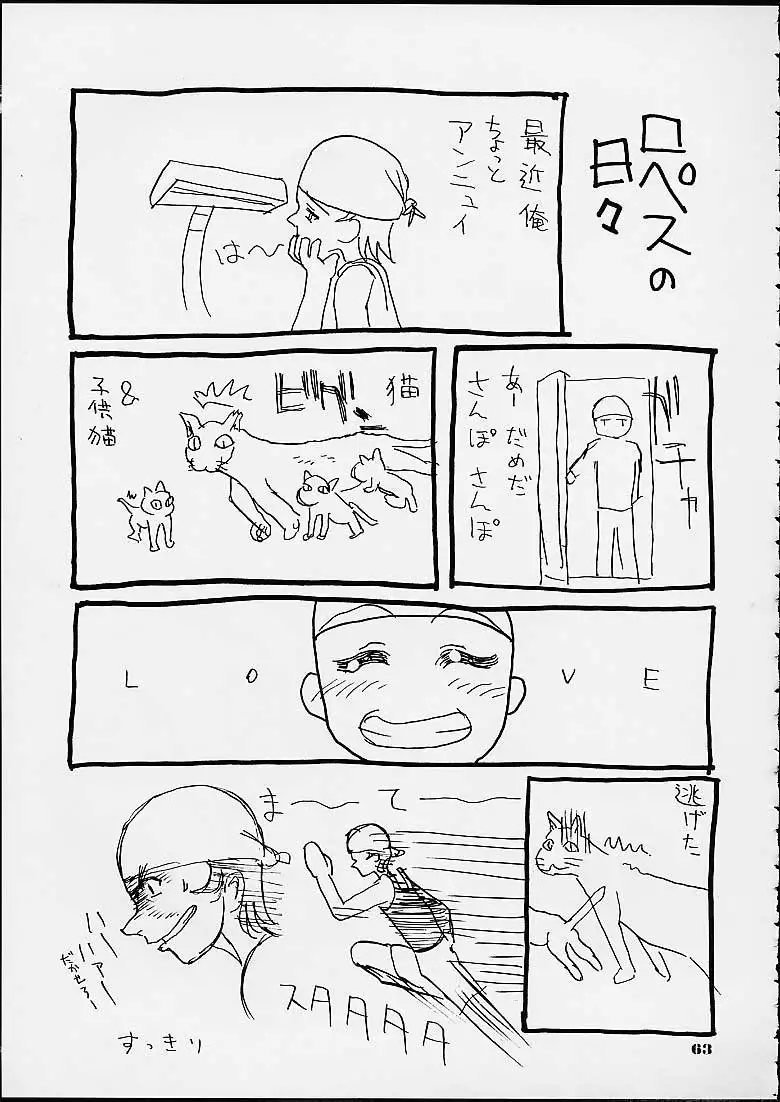 ロペスの
日々
最近俺
ちょっと
アンニュイ
は〜
ガチャ
あーだめだ
さんぽさんぽ
猫
ビクッ
&
子供猫
LOVE
逃げた
まーてー
ハァ
ハァー
だかせろー
スタタタタ
すっきり
63